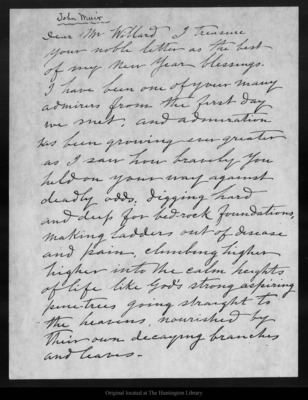 John Muir
Dear Mr Willard I treasure
your noble letter as the best
of my New Year blessings.
I have been one of your many
admirers from the first day
we met, and admiration
has been growing ever greater
as I saw how bravely you
held on your way against
deadly odds, digging hard
and deep for bedrock foundations,
making ladders out of disease
and pain, climbing higher
higher into the calm heights
of life like God's strong aspiring
pinetrees going straight to
the heavens, nourished by
their own decaying branches
and leaves.
Original located at The Huntington Library